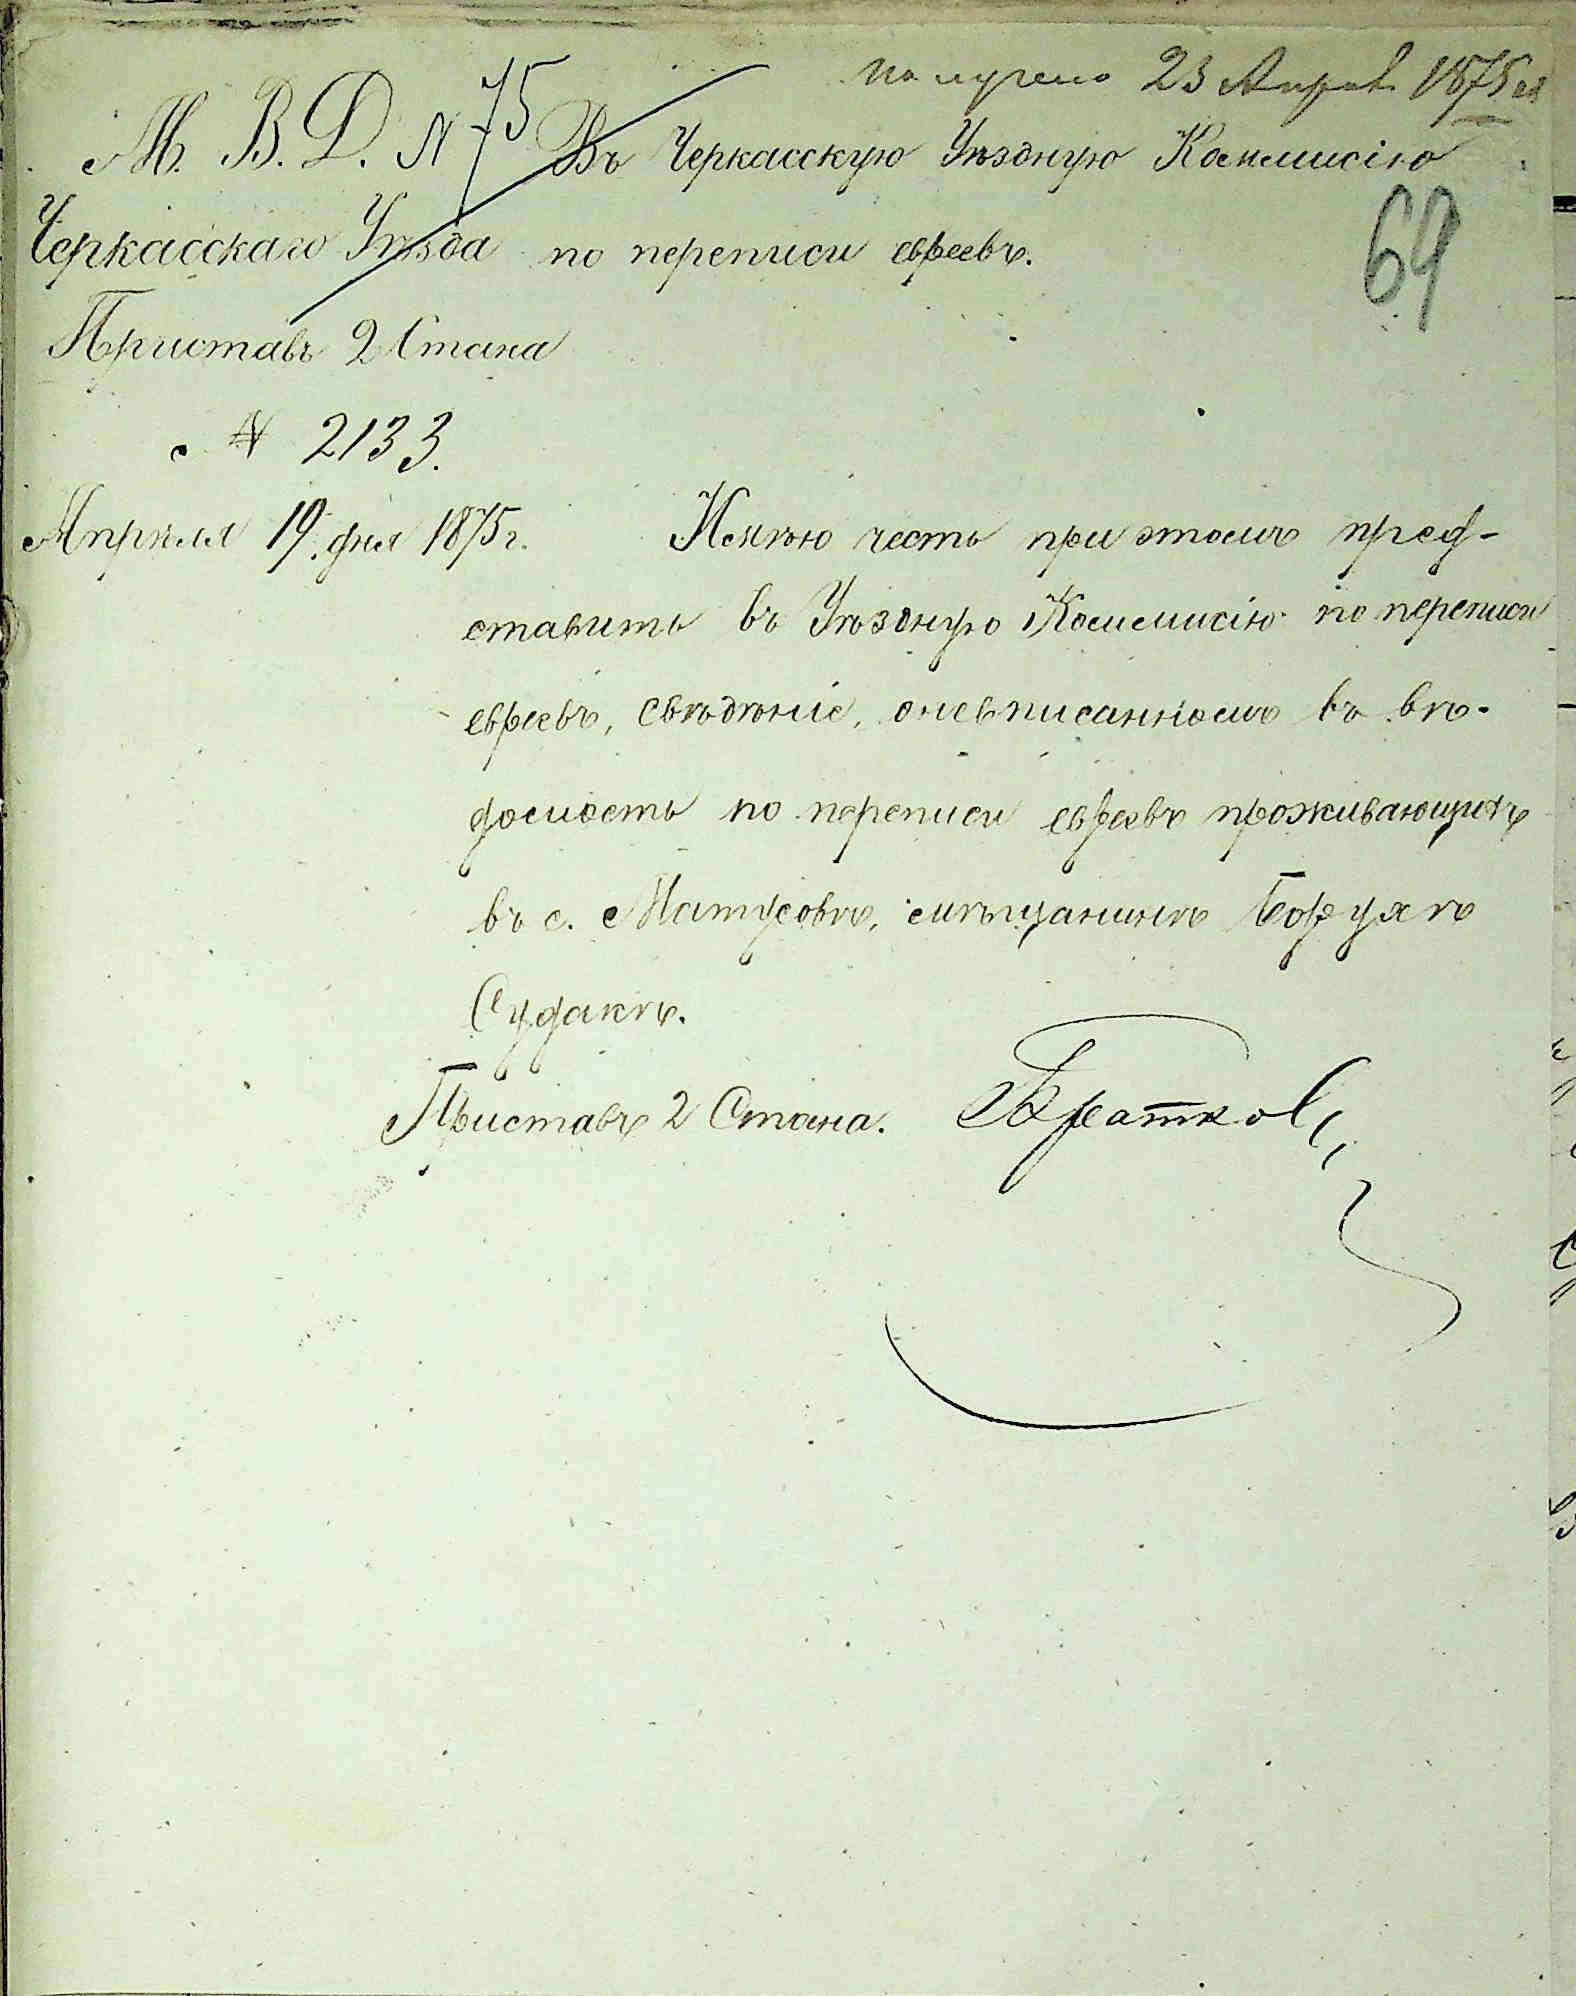 получено 23 Апрѣл 1875 г.
М. В. Д. N 75
Въ Черкасскую Уѣздную Коммисію
Черкасскаго Уѣзда
по переписи евреевъ.
69
Приставъ 2 Стана
N 2133.
Апрѣля 19 дня 1875 г.
Имѣю честь при этомъ пред-
ставить въ Уѣздную Коммисію по переписи
евреевъ, свѣдѣніе, оневписанномъ въ вѣ-
домость по переписи евреевъ проживающихъ
въ с. Матусовѣ, мѣщанинѣ Борухѣ
Судакѣ.
Приставъ 2 Стана.